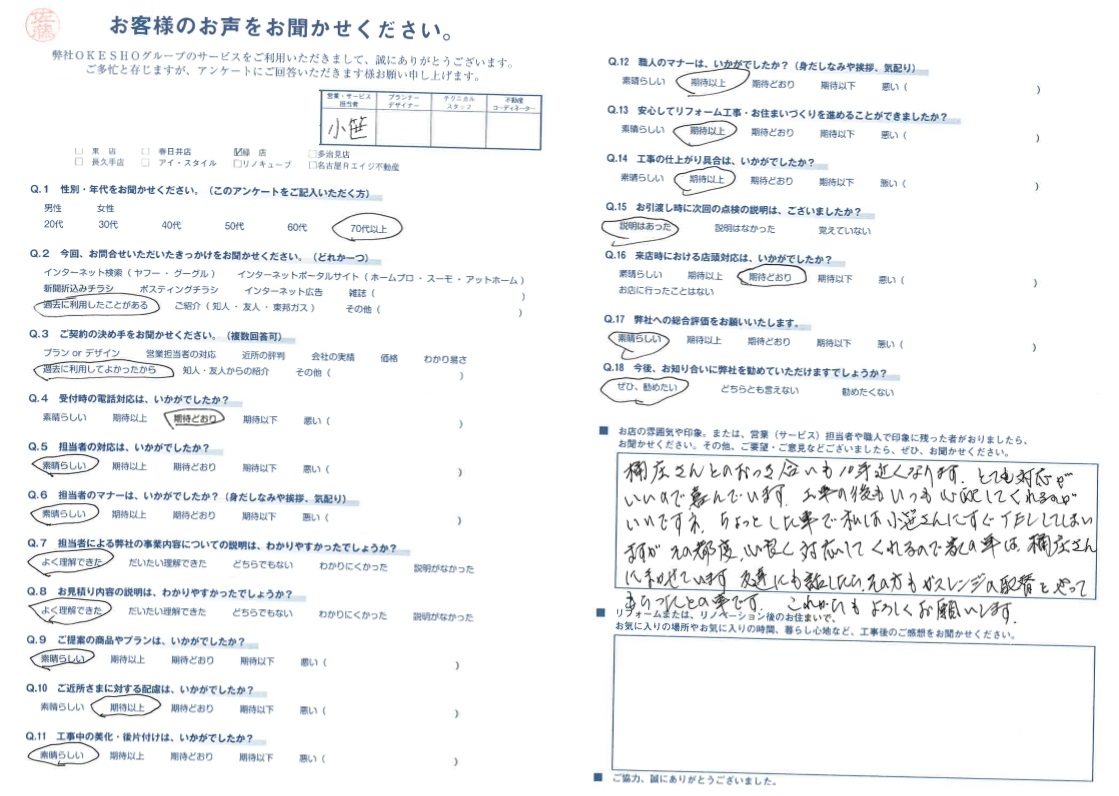 佐藤
お客様のお声をお聞かせください。
弊社OKESHOグループのサービスをご利用いただきまして、誠にありがとうございます。
ご多忙と存じますが、アンケートにご回答いただきます様お願い申し上げます。
営業・サービス担当者 プランナーデザイナー テクニカルスタッフ 不動産コーディネーター
小笹
□ 東 店 □ 春日井店 ☑緑 店 □多治見店
□ 長久手店 □ アイ・スタイル □リノキューブ □名古屋Rエイジ不動産
Q.1 性別・年代をお聞かせください。(このアンケートをご記入いただく方)
男性 女性
20代 30代 40代 50代 60代 70代以上
Q.2 今回、お問合せいただいたきっかけをお聞かせください。(どれか一つ)
インターネット検索(ヤフー・グーグル) インターネットポータルサイト(ホームプロ・スーモ・アットホーム)
新聞折込みチラシ ポスティングチラシ インターネット広告 雑誌( )
過去に利用したことがある ご紹介(知人・友人・東邦ガス) その他( )
Q.3 ご契約の決め手をお聞かせください。(複数回答可)
プラン or デザイン 営業担当者の対応 近所の評判 会社の実績 価格 わかり易さ
過去に利用してよかったから 知人・友人からの紹介 その他( )
Q.4 受付時の電話対応は、いかがでしたか?
素晴らしい 期待以上 期待どおり 期待以下 悪い( )
Q.5 担当者の対応は、いかがでしたか?
素晴らしい 期待以上 期待どおり 期待以下 悪い( )
Q.6 担当者のマナーは、いかがでしたか?(身だしなみや挨拶、気配り)
素晴らしい 期待以上 期待どおり 期待以下 悪い( )
Q.7 担当者による弊社の事業内容についての説明は、わかりやすかったでしょうか?
よく理解できた だいたい理解できた どちらでもない わかりにくかった 説明がなかった
Q.8 お見積り内容の説明は、わかりやすかったでしょうか?
よく理解できた だいたい理解できた どちらでもない わかりにくかった 説明がなかった
Q.9 ご提案の商品やプランは、いかがでしたか?
素晴らしい 期待以上 期待どおり 期待以下 悪い( )
Q.10 ご近所さまに対する配慮は、いかがでしたか?
素晴らしい 期待以上 期待どおり 期待以下 悪い( )
Q.11 工事中の美化・後片付けは、いかがでしたか?
素晴らしい 期待以上 期待どおり 期待以下 悪い( )
Q.12 職人のマナーは、いかがでしたか?(身だしなみや挨拶、気配り)
素晴らしい 期待以上 期待どおり 期待以下 悪い( )
Q.13 安心してリフォーム工事・お住まいづくりを進めることができましたか?
素晴らしい 期待以上 期待どおり 期待以下 悪い( )
Q.14 工事の仕上がり具合は、いかがでしたか?
素晴らしい 期待以上 期待どおり 期待以下 悪い( )
Q.15 お引渡し時に次回の点検の説明は、ございましたか?
説明はあった 説明はなかった 覚えていない
Q.16 来店時における店頭対応は、いかがでしたか?
素晴らしい 期待以上 期待どおり 期待以下 悪い( )
お店に行ったことはない
Q.17 弊社への総合評価をお願いいたします。
素晴らしい 期待以上 期待どおり 期待以下 悪い( )
Q.18 今後、お知り合いに弊社を勧めていただけますでしょうか?
ぜひ、勧めたい どちらとも言えない 勧めたくない
■ お店の雰囲気や印象。または、営業(サービス)担当者や職人で印象に残った者がおりましたら、
お聞かせください。その他、ご要望・ご意見などございましたら、ぜひ、お聞かせください。
桶庄さんとのおつき合いも10年近くなります。とても対応が
いいので喜んでいます。工事の後もいつも心配してくれるのが
いいですネ。ちょっとした事で私は小笹さんにすぐTELしてしまい
ますが その都度、心良く対応してくれるので家の事は、桶庄さん
にまかせています 友達にも話したら、その方もガスレンジの取替をやって
もらったとの事です。これからもよろしくお願いします。
■ リフォームまたは、リノベーション後のお住まいで、
お気に入りの場所やお気に入りの時間、暮らし心地など、工事後のご感想をお聞かせください。
■ ご協力、誠にありがとうございました。